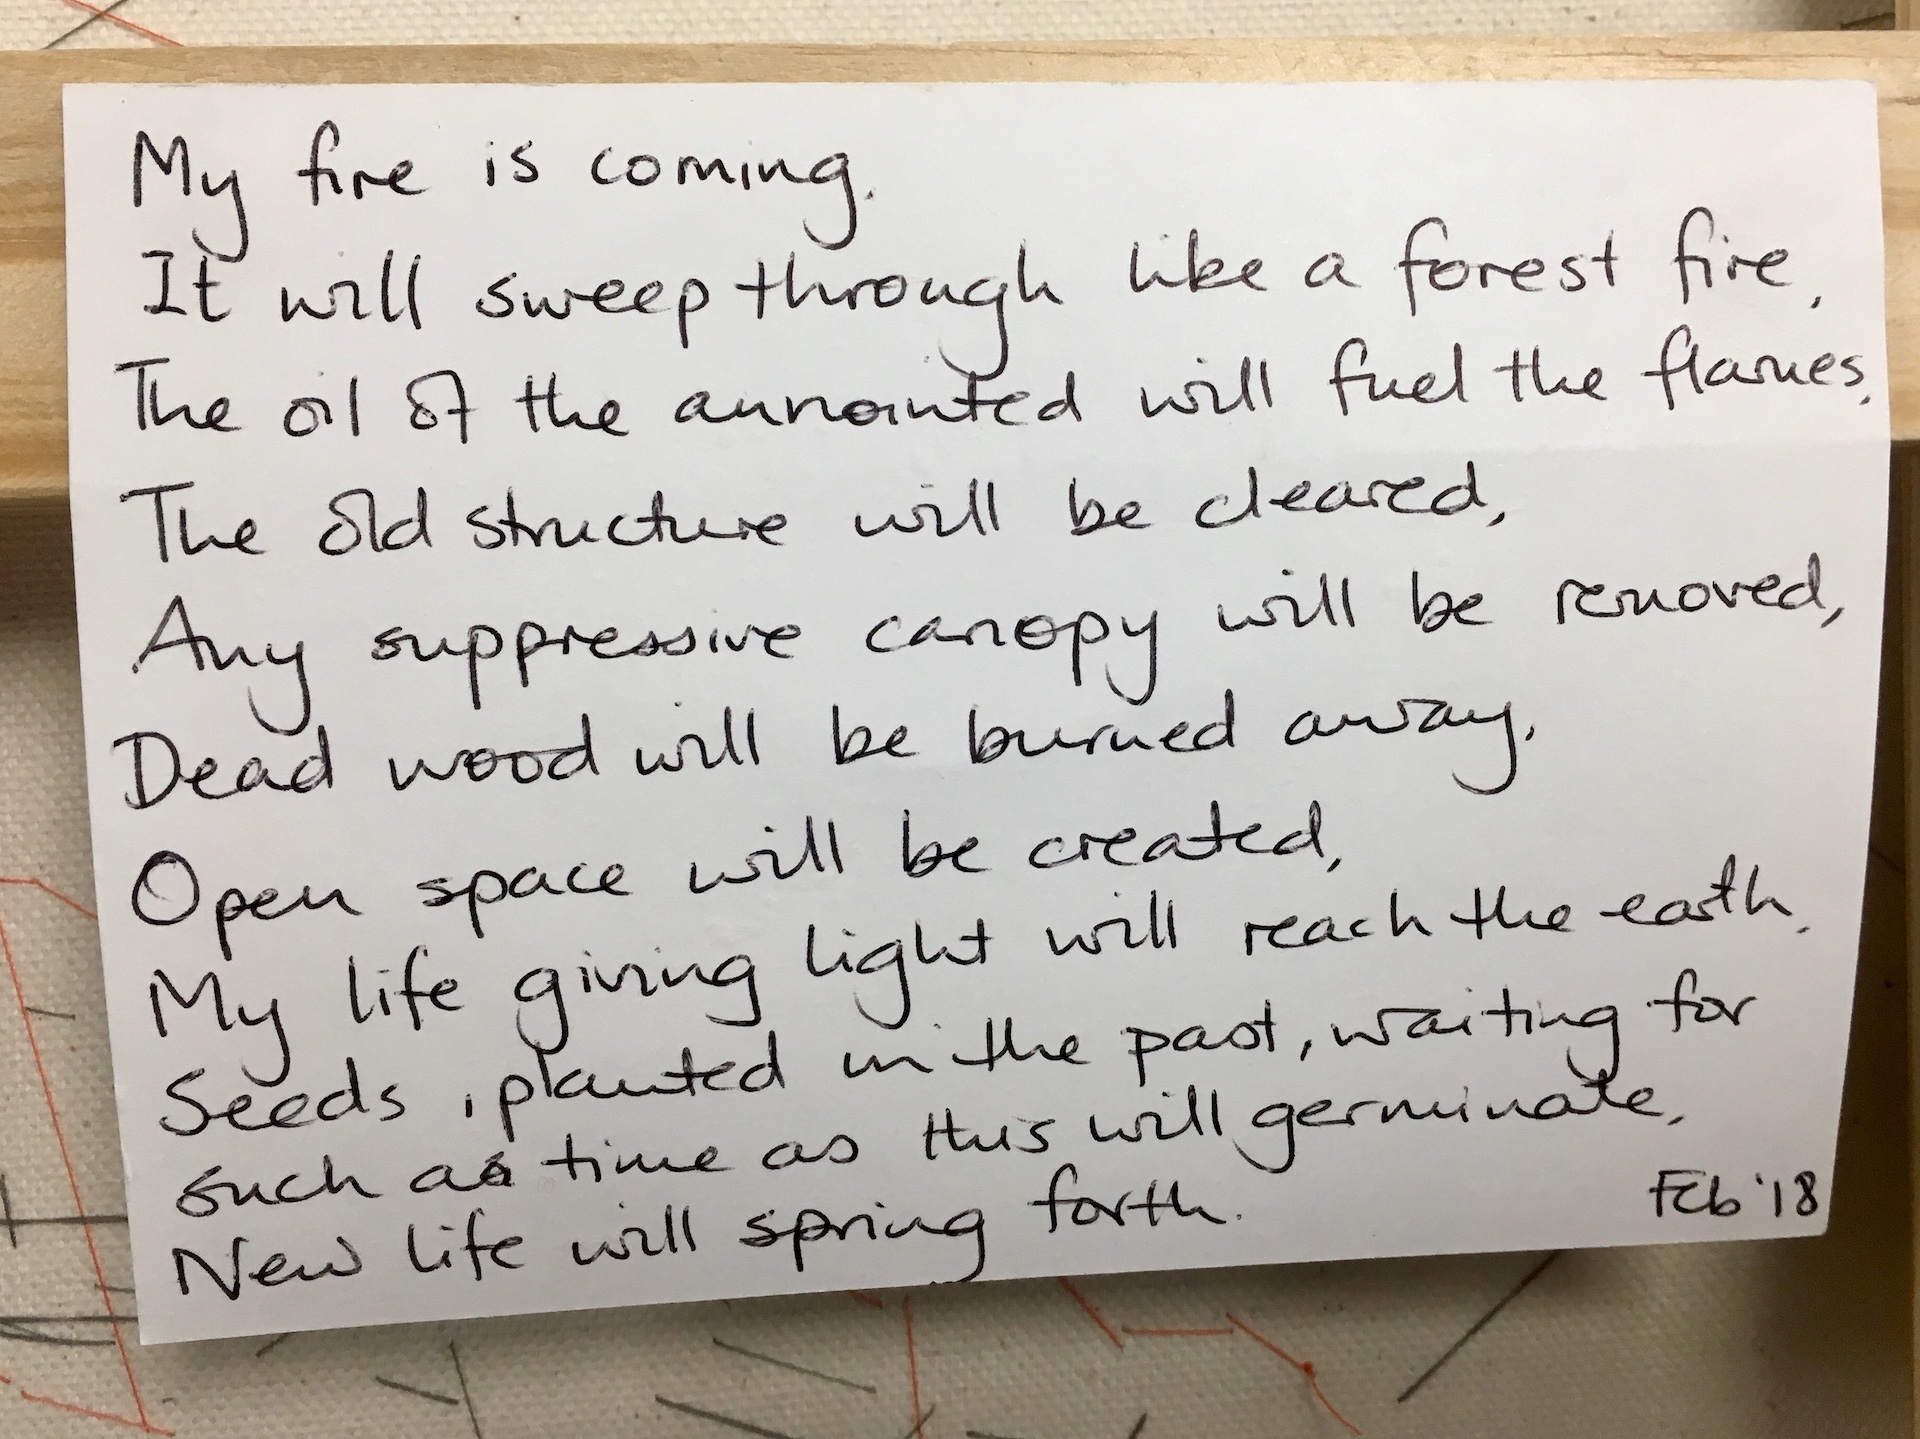 My fire is coming.
It will sweep through like a forest fire,
The oil of the annointed will fuel the flames.
The old structure will be cleared,
Any suppressive canopy will be removed,
Dead wood will be burned away,
Open space will be created,
My life giving light will reach the earth.
Seeds, planted in the past, waiting for
such as time as this will germinate,
New life will spring forth.
Feb '18